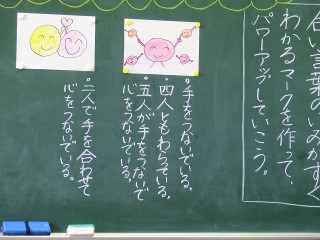 合い言葉のいみがすぐ
わかるマークを作って、
パワーアップしていこう。
・手をつないでいる。
・四人ともわらっている。
・五人が手をつないで
心をつないでいる。
・二人で手を合わせて
心をつないでいる。